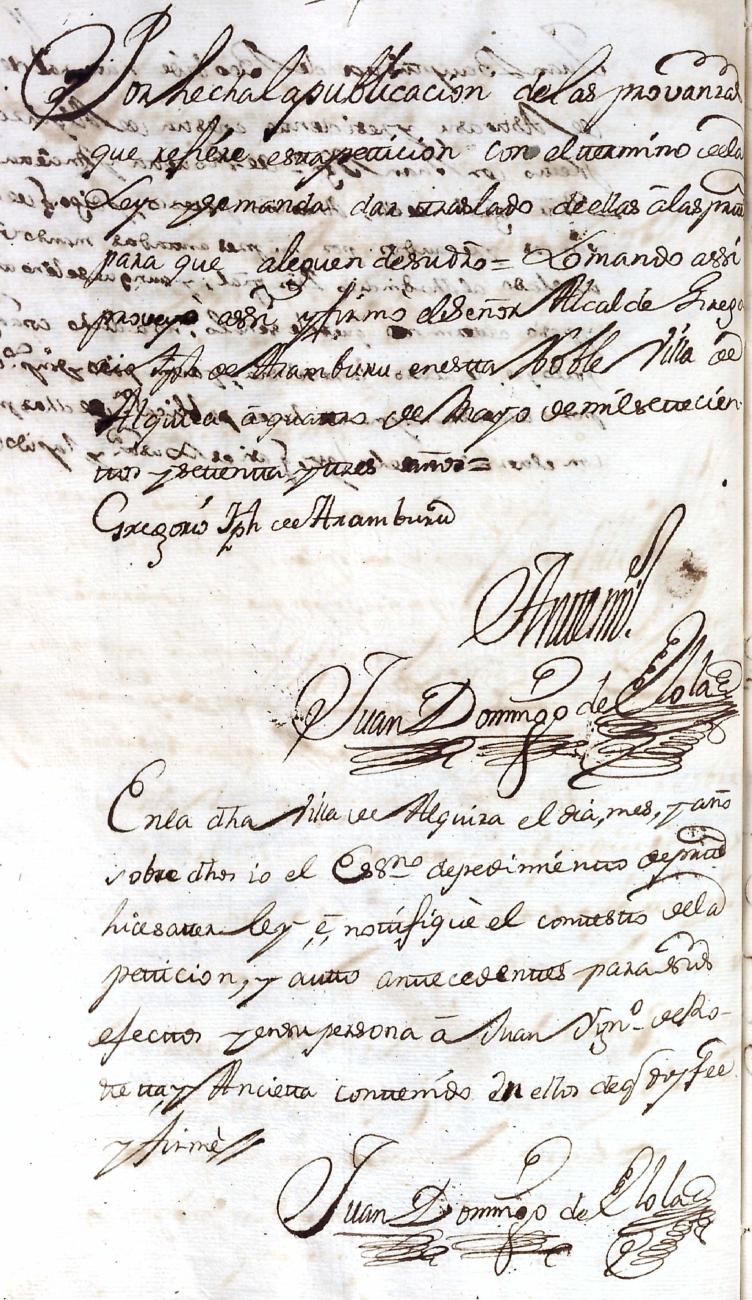 Por hecha la publicacion de las provanzas
que refiere esta peticion con el termino de la
Ley y se manda dar traslado de ellas â las ptes
para que aleguen de su dro = Lo mando assi
proveyo assi y firmo el Señor Alcalde Grego
rio Jph de Aramburu en esta Noble Villa de
Alquiza â quatro de Mayo de mil settecien
ttos y settentta y ttres años =
Gregorio Jph de Aramburu
Antemi
Juan Domingo de Ollola
En la dha Villa de Alquiza el dia, mes, y año
sobre dhos io el Essno de pedimientto de partte
hice saver ley ê, notifiquè el contesto de la
petticion, y autto anttecedenttes para sus
efecttos y en su persona â Juan de Ro-
tteta y Anciетta conttenido en ellos de q doy fee
y firmè
Juan Domingo de Ollola